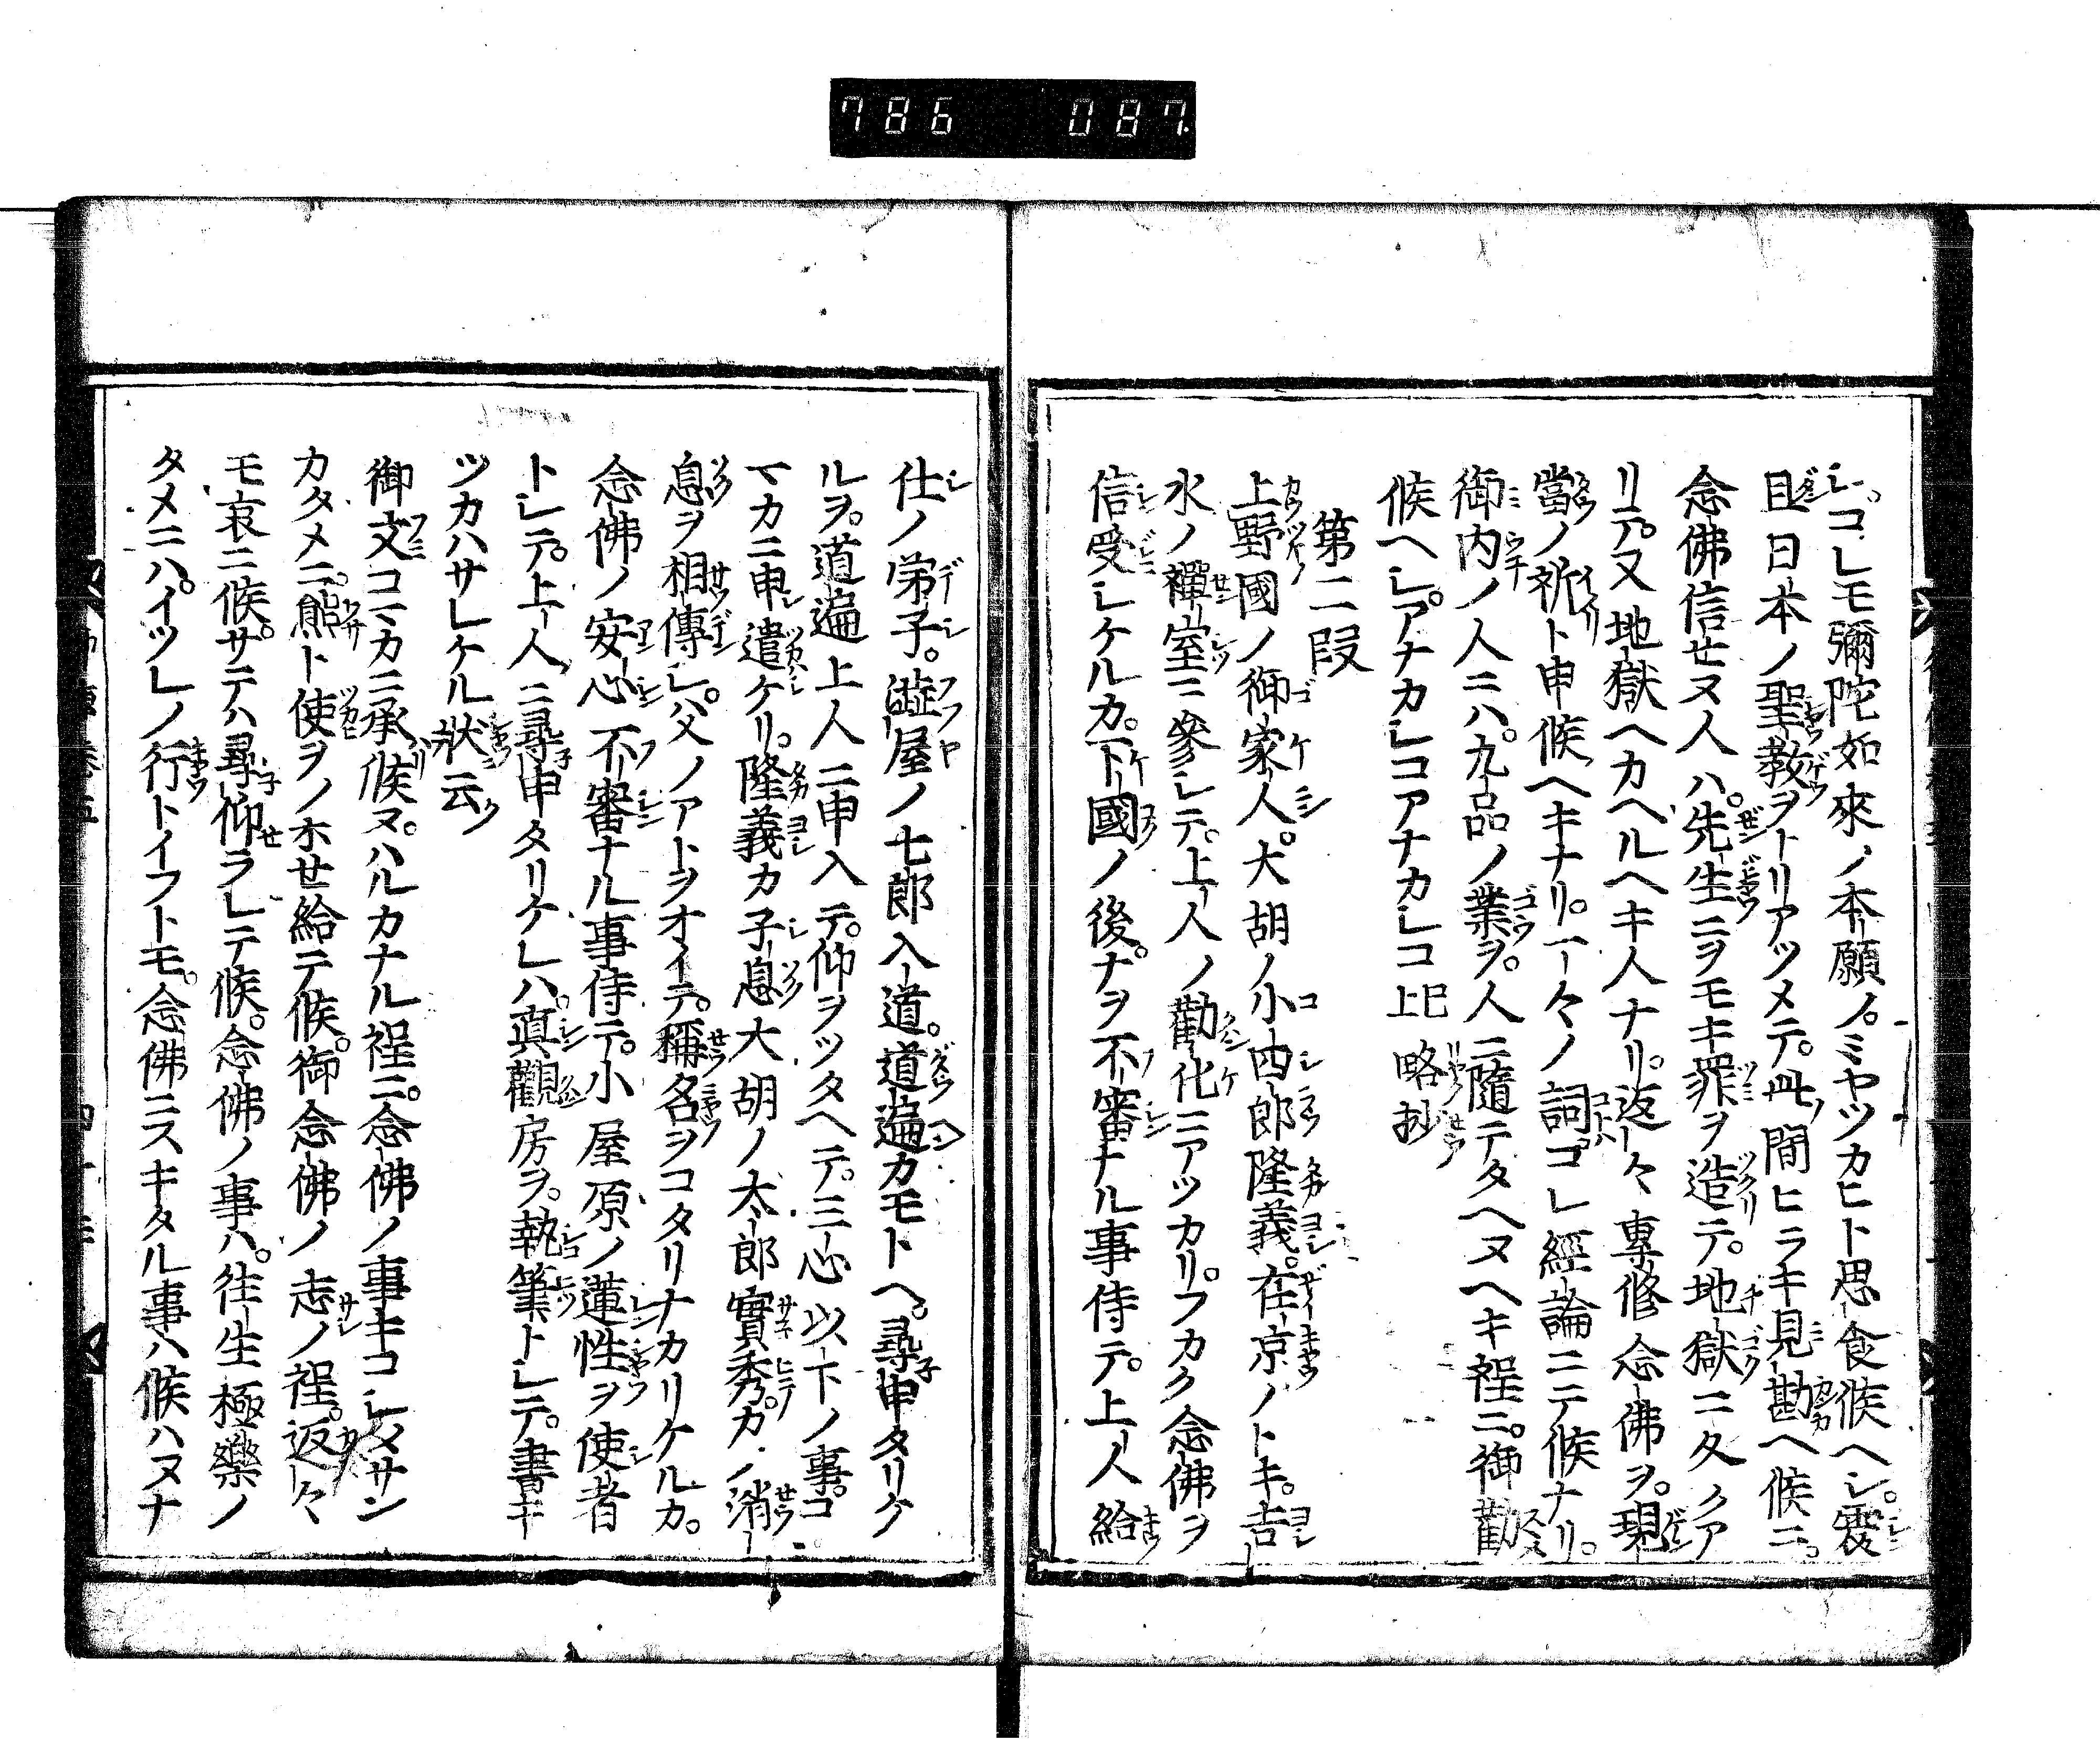 786 087
シ。コレモ彌陀如來ノ本願ノ。ミヤツカヒト思食候ヘシ。震
旦日本ノ聖教ヲトリアツメテ。此間ヒラキ見勘ヘ候ニ。
念佛信セヌ人ハ。先生ニヲモキ罪ヲ造テ。地獄ニ久クア
リテ。又地獄ヘカヘルヘキ人ナリ。返々專修念佛ヲ。現
當ノ祈ト申候ヘキナリ。一々ノ詞コレ經論ニテ候ナリ。
御内ノ人ニハ。九品ノ業ヲ。人ニ隨テタヘヌヘキ程ニ。御勸
候ヘシ。アナカシコアナカシコ 已上 略抄
第二段
上野國ノ御家人。大胡ノ小四郎隆義。在京ノトキ。吉
水ノ禪室ニ參シテ。上人ノ勸化ニアツカリ。フカク念佛ヲ
信受シケルカ。下國ノ後。ナヲ不審ナル事侍テ。上人給
仕ノ弟子。澁屋ノ七郎入道。道遍カモトヘ。尋申タリケ
ルヲ。道遍上人ニ申入テ。仰ヲツタヘテ。三心以下ノ事。コ
マカニ申遣ケリ。隆義カ子息大胡ノ太郎實秀。カノ消
息ヲ相傳シ。父ノアトヲオイテ。稱名ヲコタリナカリケルカ。
念佛ノ安心不審ナル事侍テ。小屋原ノ蓮性ヲ使者
トシテ。上人ニ尋申タリケレハ。眞觀房ヲ。執筆トシテ。書キ
ツカハサレケル狀云
御文コマカニ承候ヌ。ハルカナル程ニ。念佛ノ事キコシメサン
カタメニ。態ト使ヲノホセ給テ候。御念佛ノ志ノ程。返々
モ哀ニ候。サテハ尋仰ラレテ候。念佛ノ事ハ。往生極樂ノ
タメニハ。イツレノ行トイフトモ。念佛ニスキタル事ハ候ハヌナ